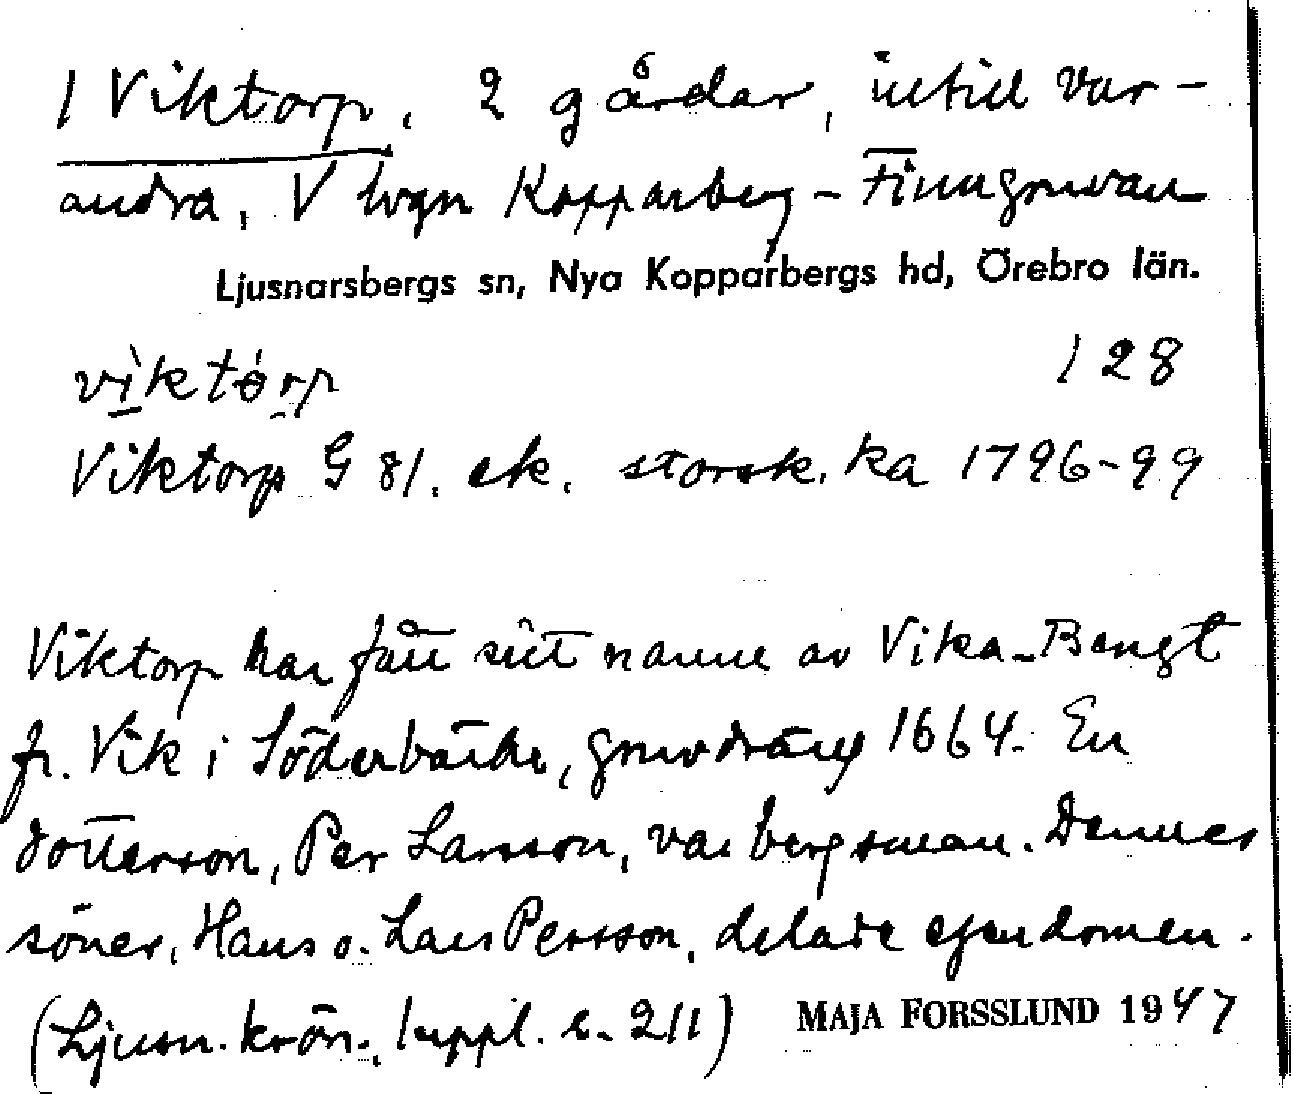 1 Viktorp, 2 gårdar, intill var-
andra, V lvgn Kopparberg - Finngruvan
Ljusnarsbergs sn, Nya Kopparbergs hd, Örebro län.
vìktórp 128
Viktorp G 81. ek. storsk. ka 1796-99
Viktorp har fått sitt namn av Vika-Bengt
fr. Vik i Söderbärke, gruvdräng 1664. En
dotterson, Per Larsson, var bergsman. Dennes
söner, Hans o. Lars Persson, delade egendomen.
(Ljusn. krön., suppl. s. 211) MAJA FORSSLUND 1947